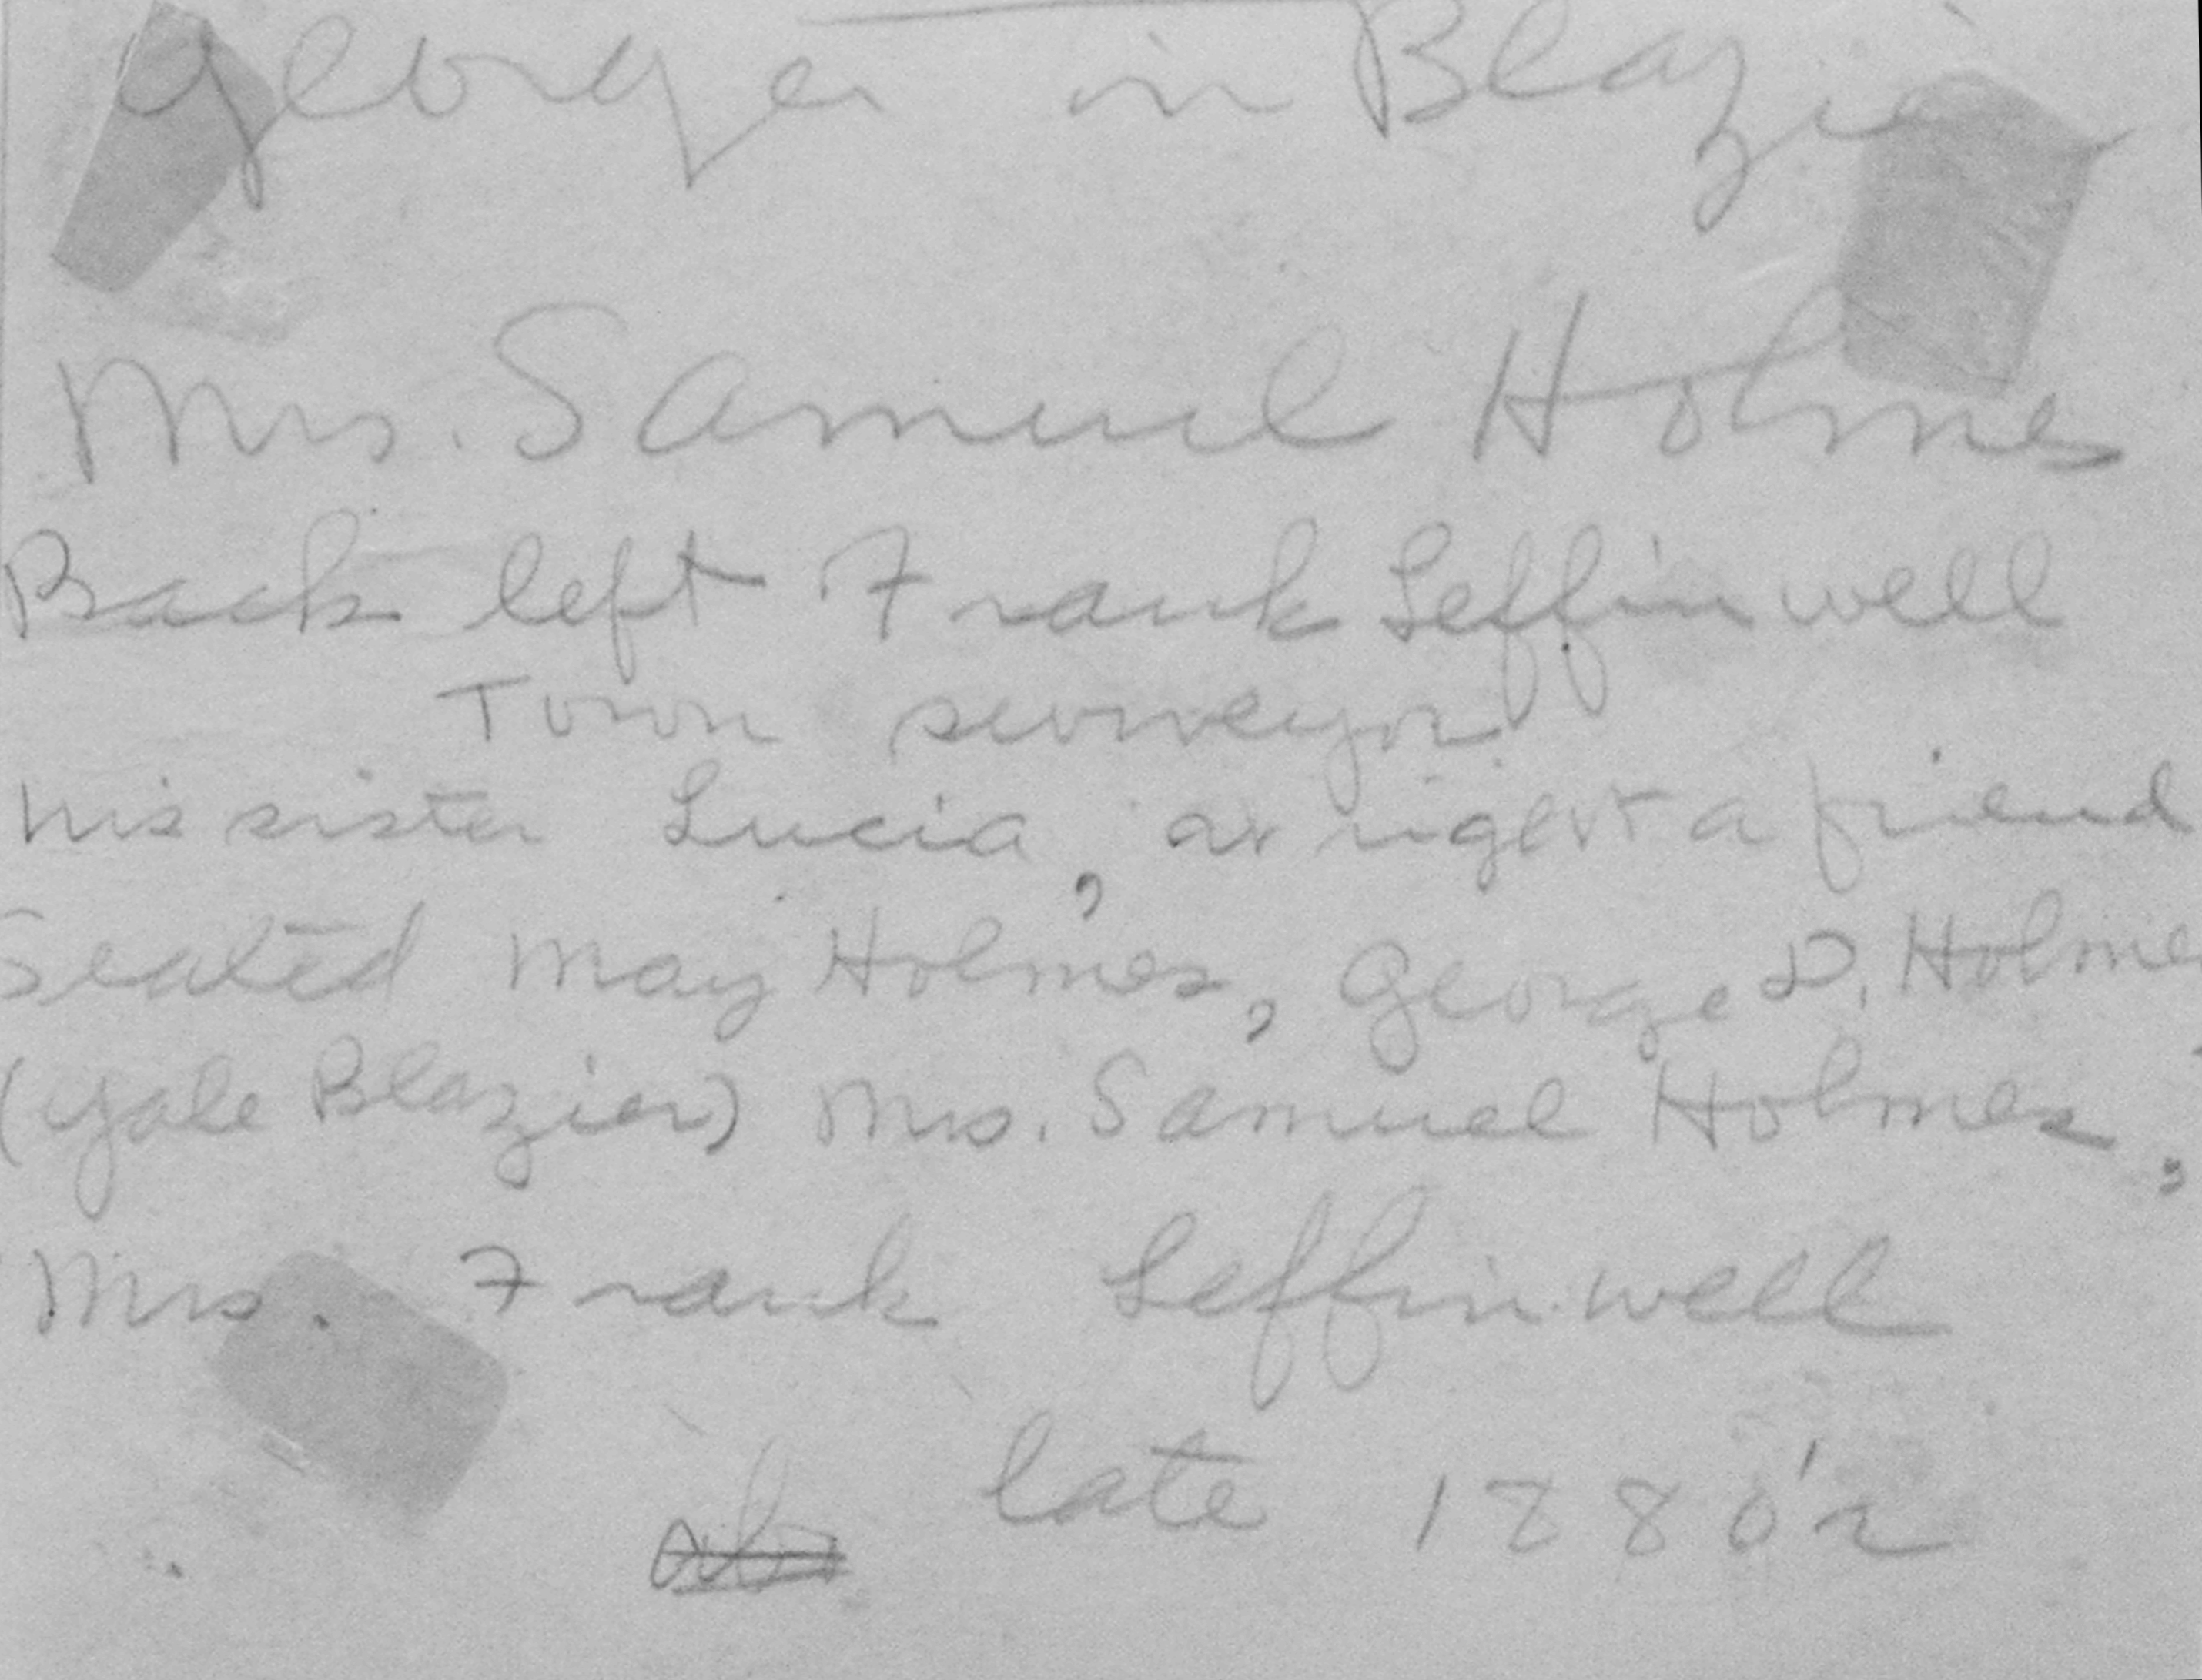 George in Blazier
Mrs. Samuel Holmes
Back left Frank Leffinwell
Town surveyor
his sister Lucia, at right a friend
Seated May Holmes, George D. Holmes
(Yale Blazier) Mrs. Samuel Holmes,
Mrs. Frank Leffinwell
late 1880's